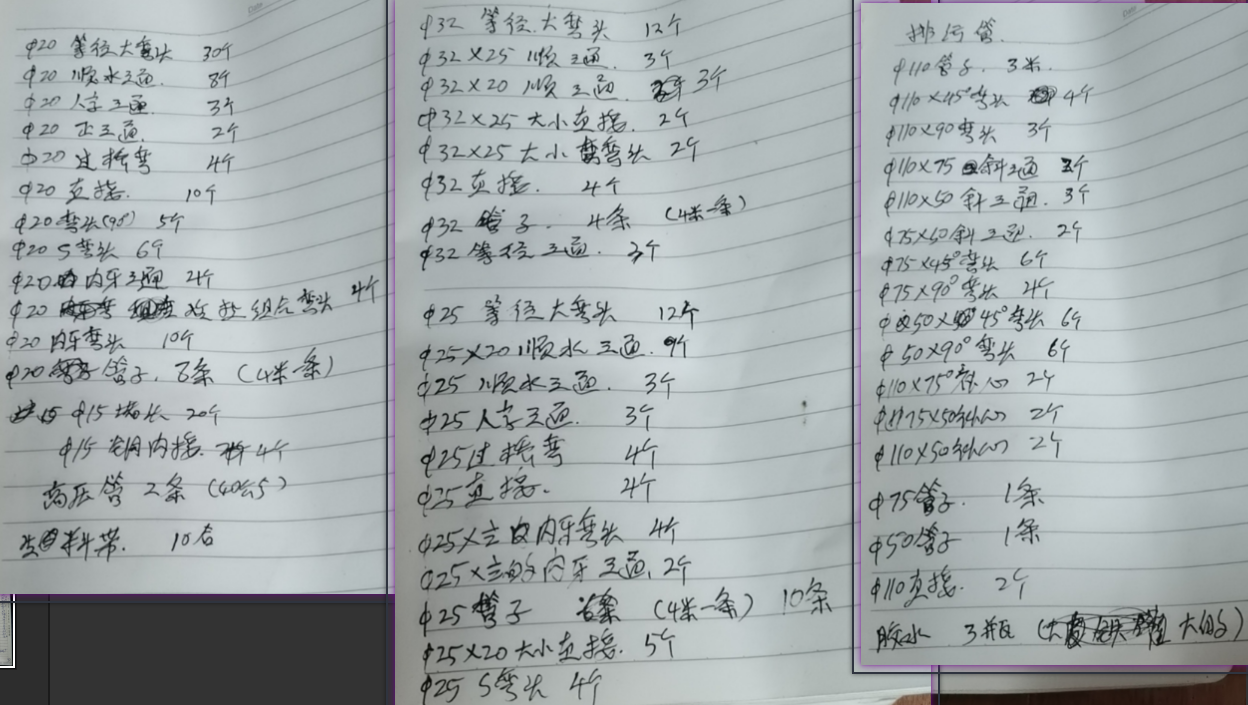 φ20 等径大弯头 30个
φ20 顺水三通 8个
φ20 人字三通 3个
φ20 正三通 2个
φ20 过桥弯 4个
φ20 直接 10个
φ20 弯头(90°) 5个
φ20 S弯头 6个
φ20 内牙三通 2个
φ20 组合弯头 4个
φ20 内牙弯头 10个
φ20 管子. 8条 (4米一条)
φ15 堵头 20个
φ15 内接 4个
高压管 2条 (40公分)
生料带. 10合
φ32 等径大弯头 12个
φ32×25 顺三通 3个
φ32×20 顺三通 3个
φ32×25 大小直接. 2个
φ32×25 大小弯头 2个
φ32 直接. 4个
φ32 管子. 4条 (4米一条)
φ32 等径三通. 3个
φ25 等径大弯头 12个
φ25×20 顺水三通. 9个
φ25 顺水三通. 3个
φ25 人字三通. 3个
φ25 过桥弯 4个
φ25 直接. 4个
φ25× 内牙弯头 4个
φ25× 内牙三通. 2个
φ25 管子 (4米一条) 10条
φ25×20 大小直接. 5个
φ25 S弯头 4个
排污管.
φ110 管子. 3米.
φ110×45°弯头 4个
φ110×90弯头 3个
φ110×75 斜三通 2个
φ110×50 斜三通. 3个
φ75×50 斜三通. 2个
φ75×45°弯头 6个
φ75×90°弯头 2个
φ50×45°弯头 6个
φ50×90°弯头 6个
φ110×75°补心 2个
φ75×50补心 2个
φ110×50补心 2个
φ75管子. 1条
φ50管子 1条
φ110直接. 2个
胶水 3瓶 (大的)